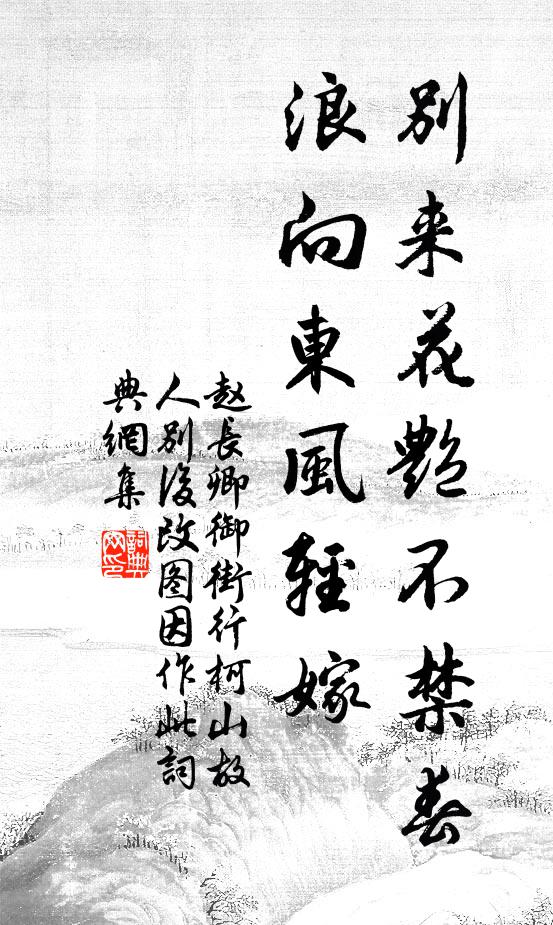 別来花艷不禁春
浪向東風輕嫁
赵長卿御街行柯山故
人別後改图因作此詞
典網集
詞典網印